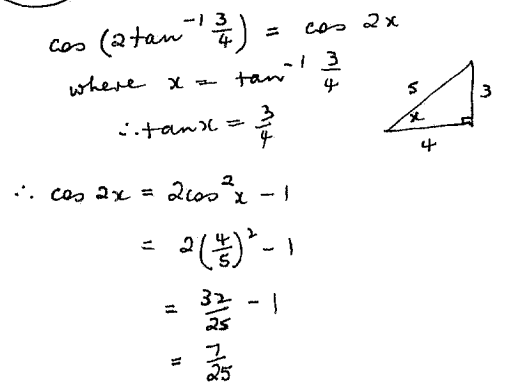 cos (2tan⁻¹ 3/4) = cos 2x
where x = tan⁻¹ 3/4
∴ tan x = 3/4
5 3
x
4
∴ cos 2x = 2cos²x - 1
= 2(4/5)² - 1
= 32/25 - 1
= 7/25